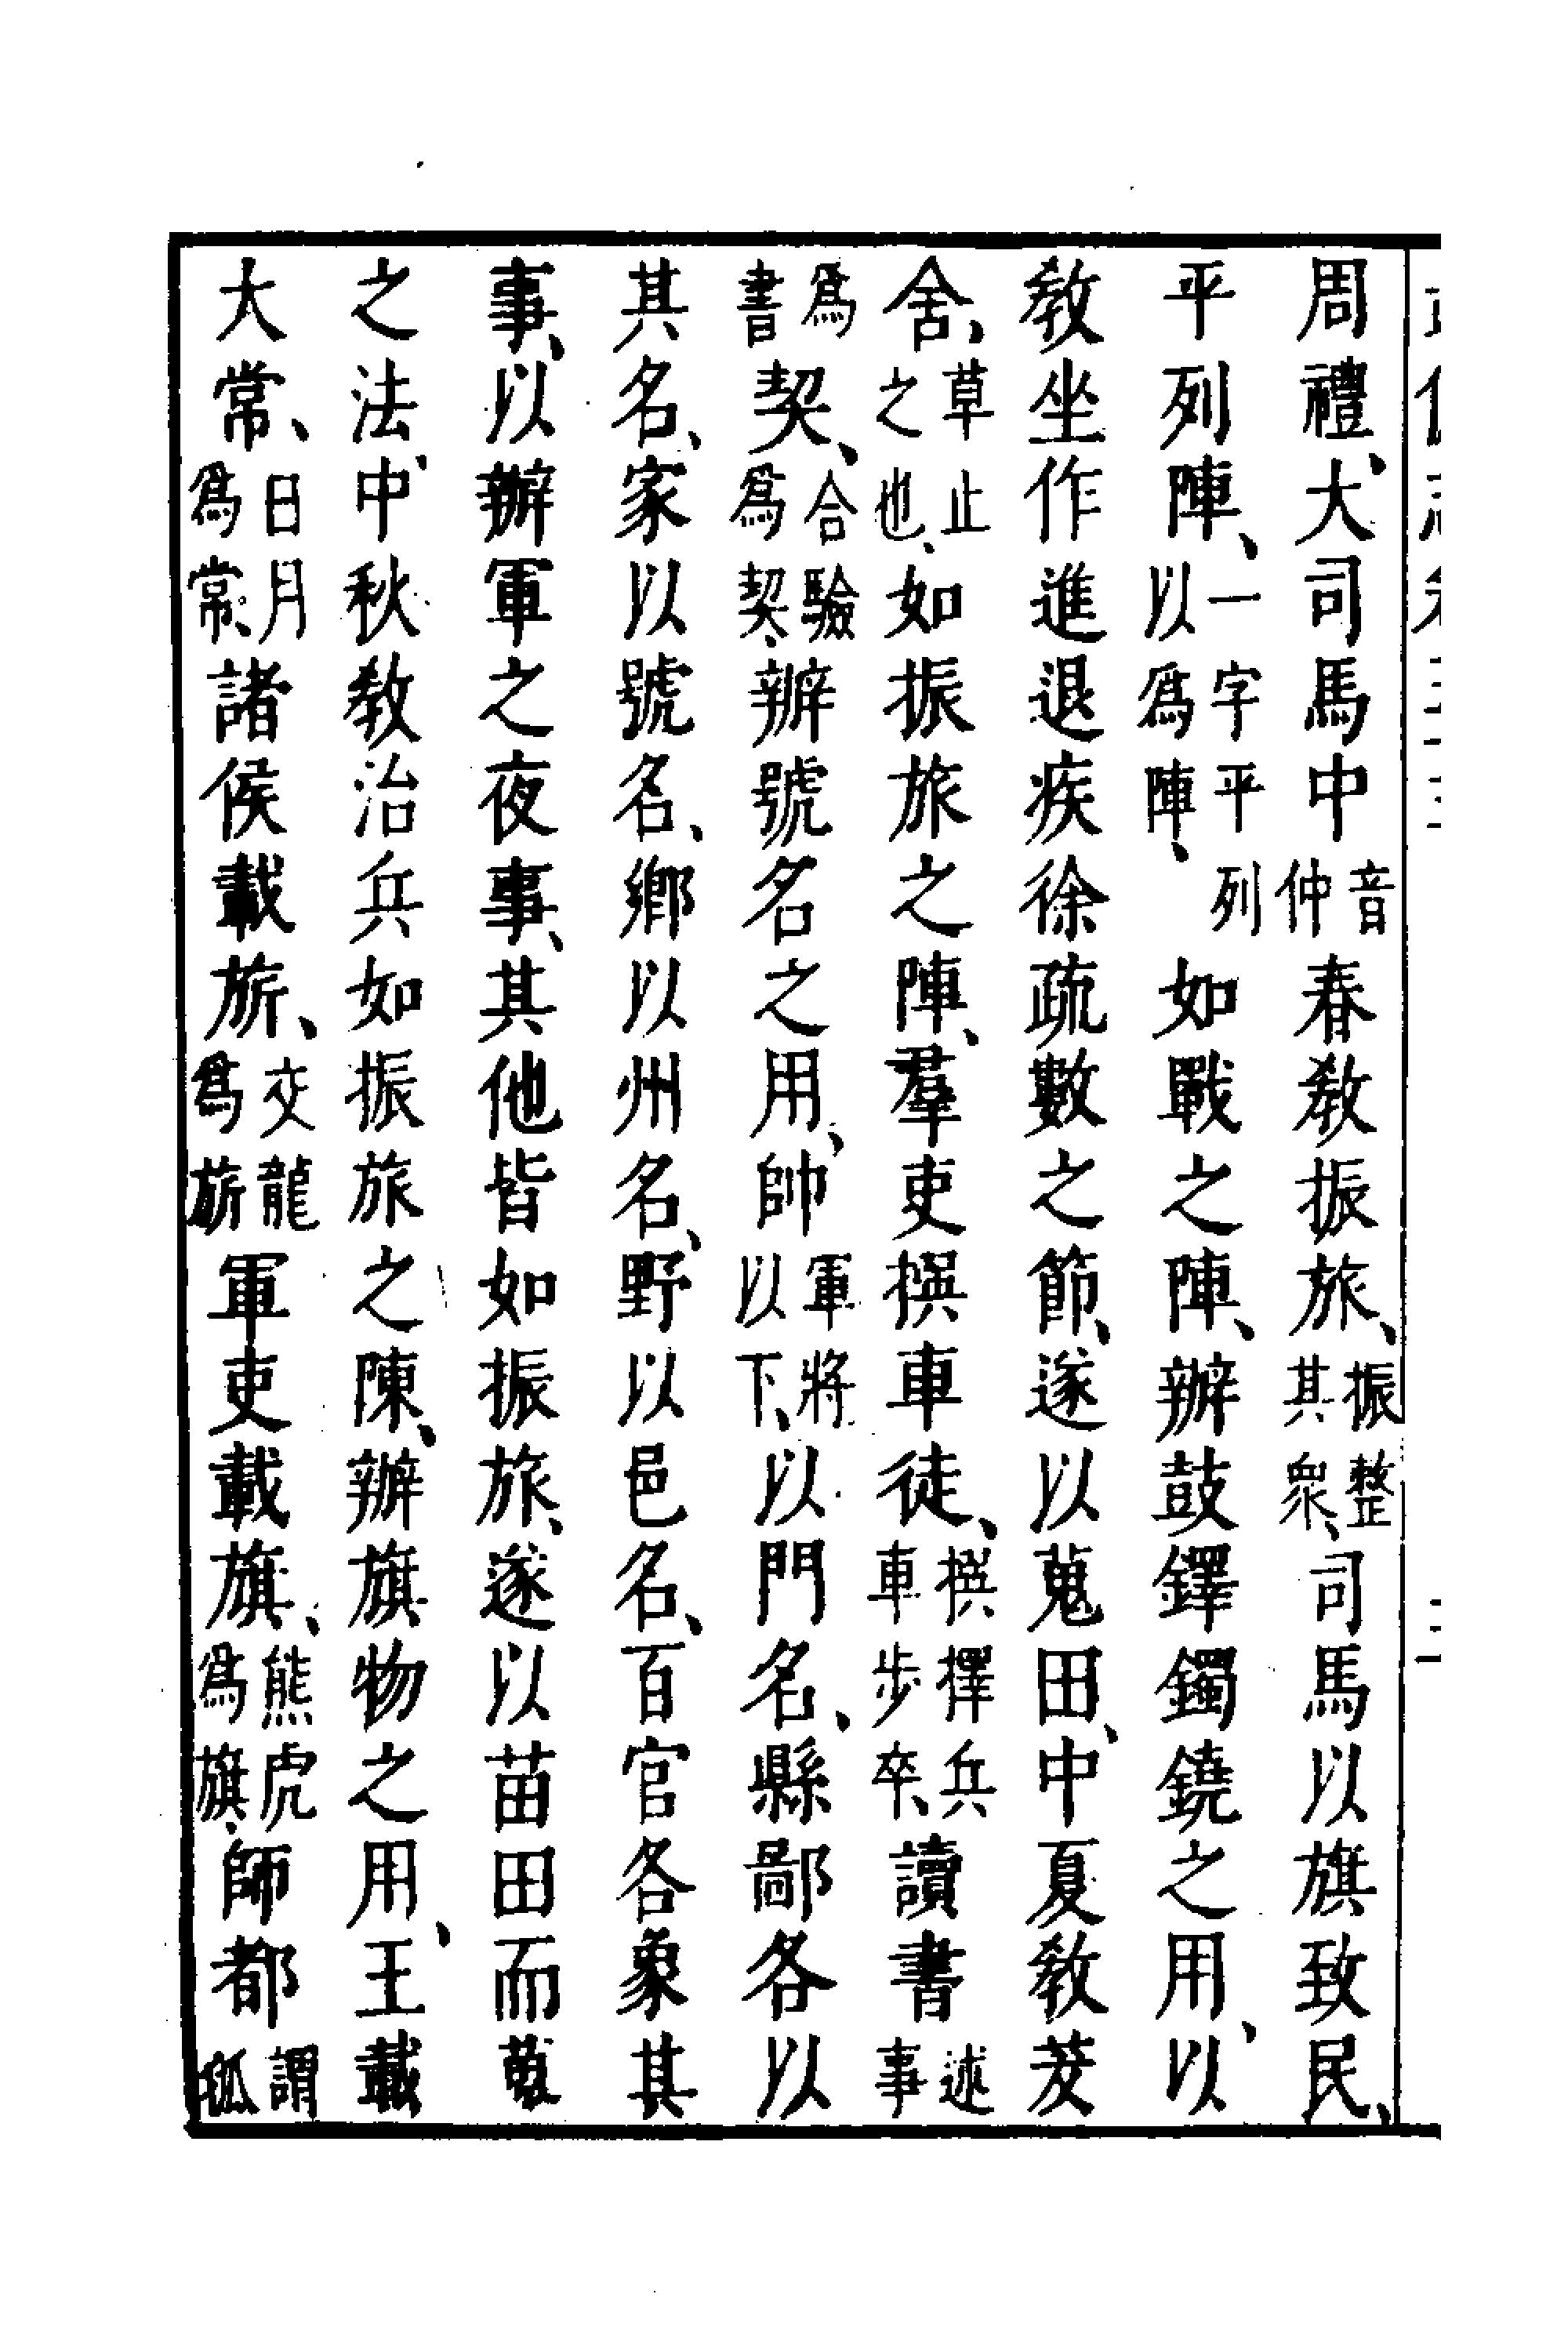 周禮、大司馬中音仲春教振旅、振整其衆、司馬以旗致民、
平列陣、一字平列以爲陣、如戰之陣、辨鼓鐸鐲鐃之用、以
教坐作進退疾徐疏數之節、遂以蒐田、中夏教茇
舍、草止之也、如振旅之陣、羣吏撰車徒、撰擇兵車步卒、讀書述事
爲書契、合驗爲契、辨號名之用、帥軍將以下、以門名、縣鄙各以
其名、家以號名、鄉以州名、野以邑名、百官各象其
事、以辦軍之夜事、其他皆如振旅、遂以苗田而
之法、中秋教治兵如振旅之陳、辨旗物之用、王載
大常、日月爲常、諸侯載旂、交龍爲旂軍吏載旗、熊虎爲旗、師都謂